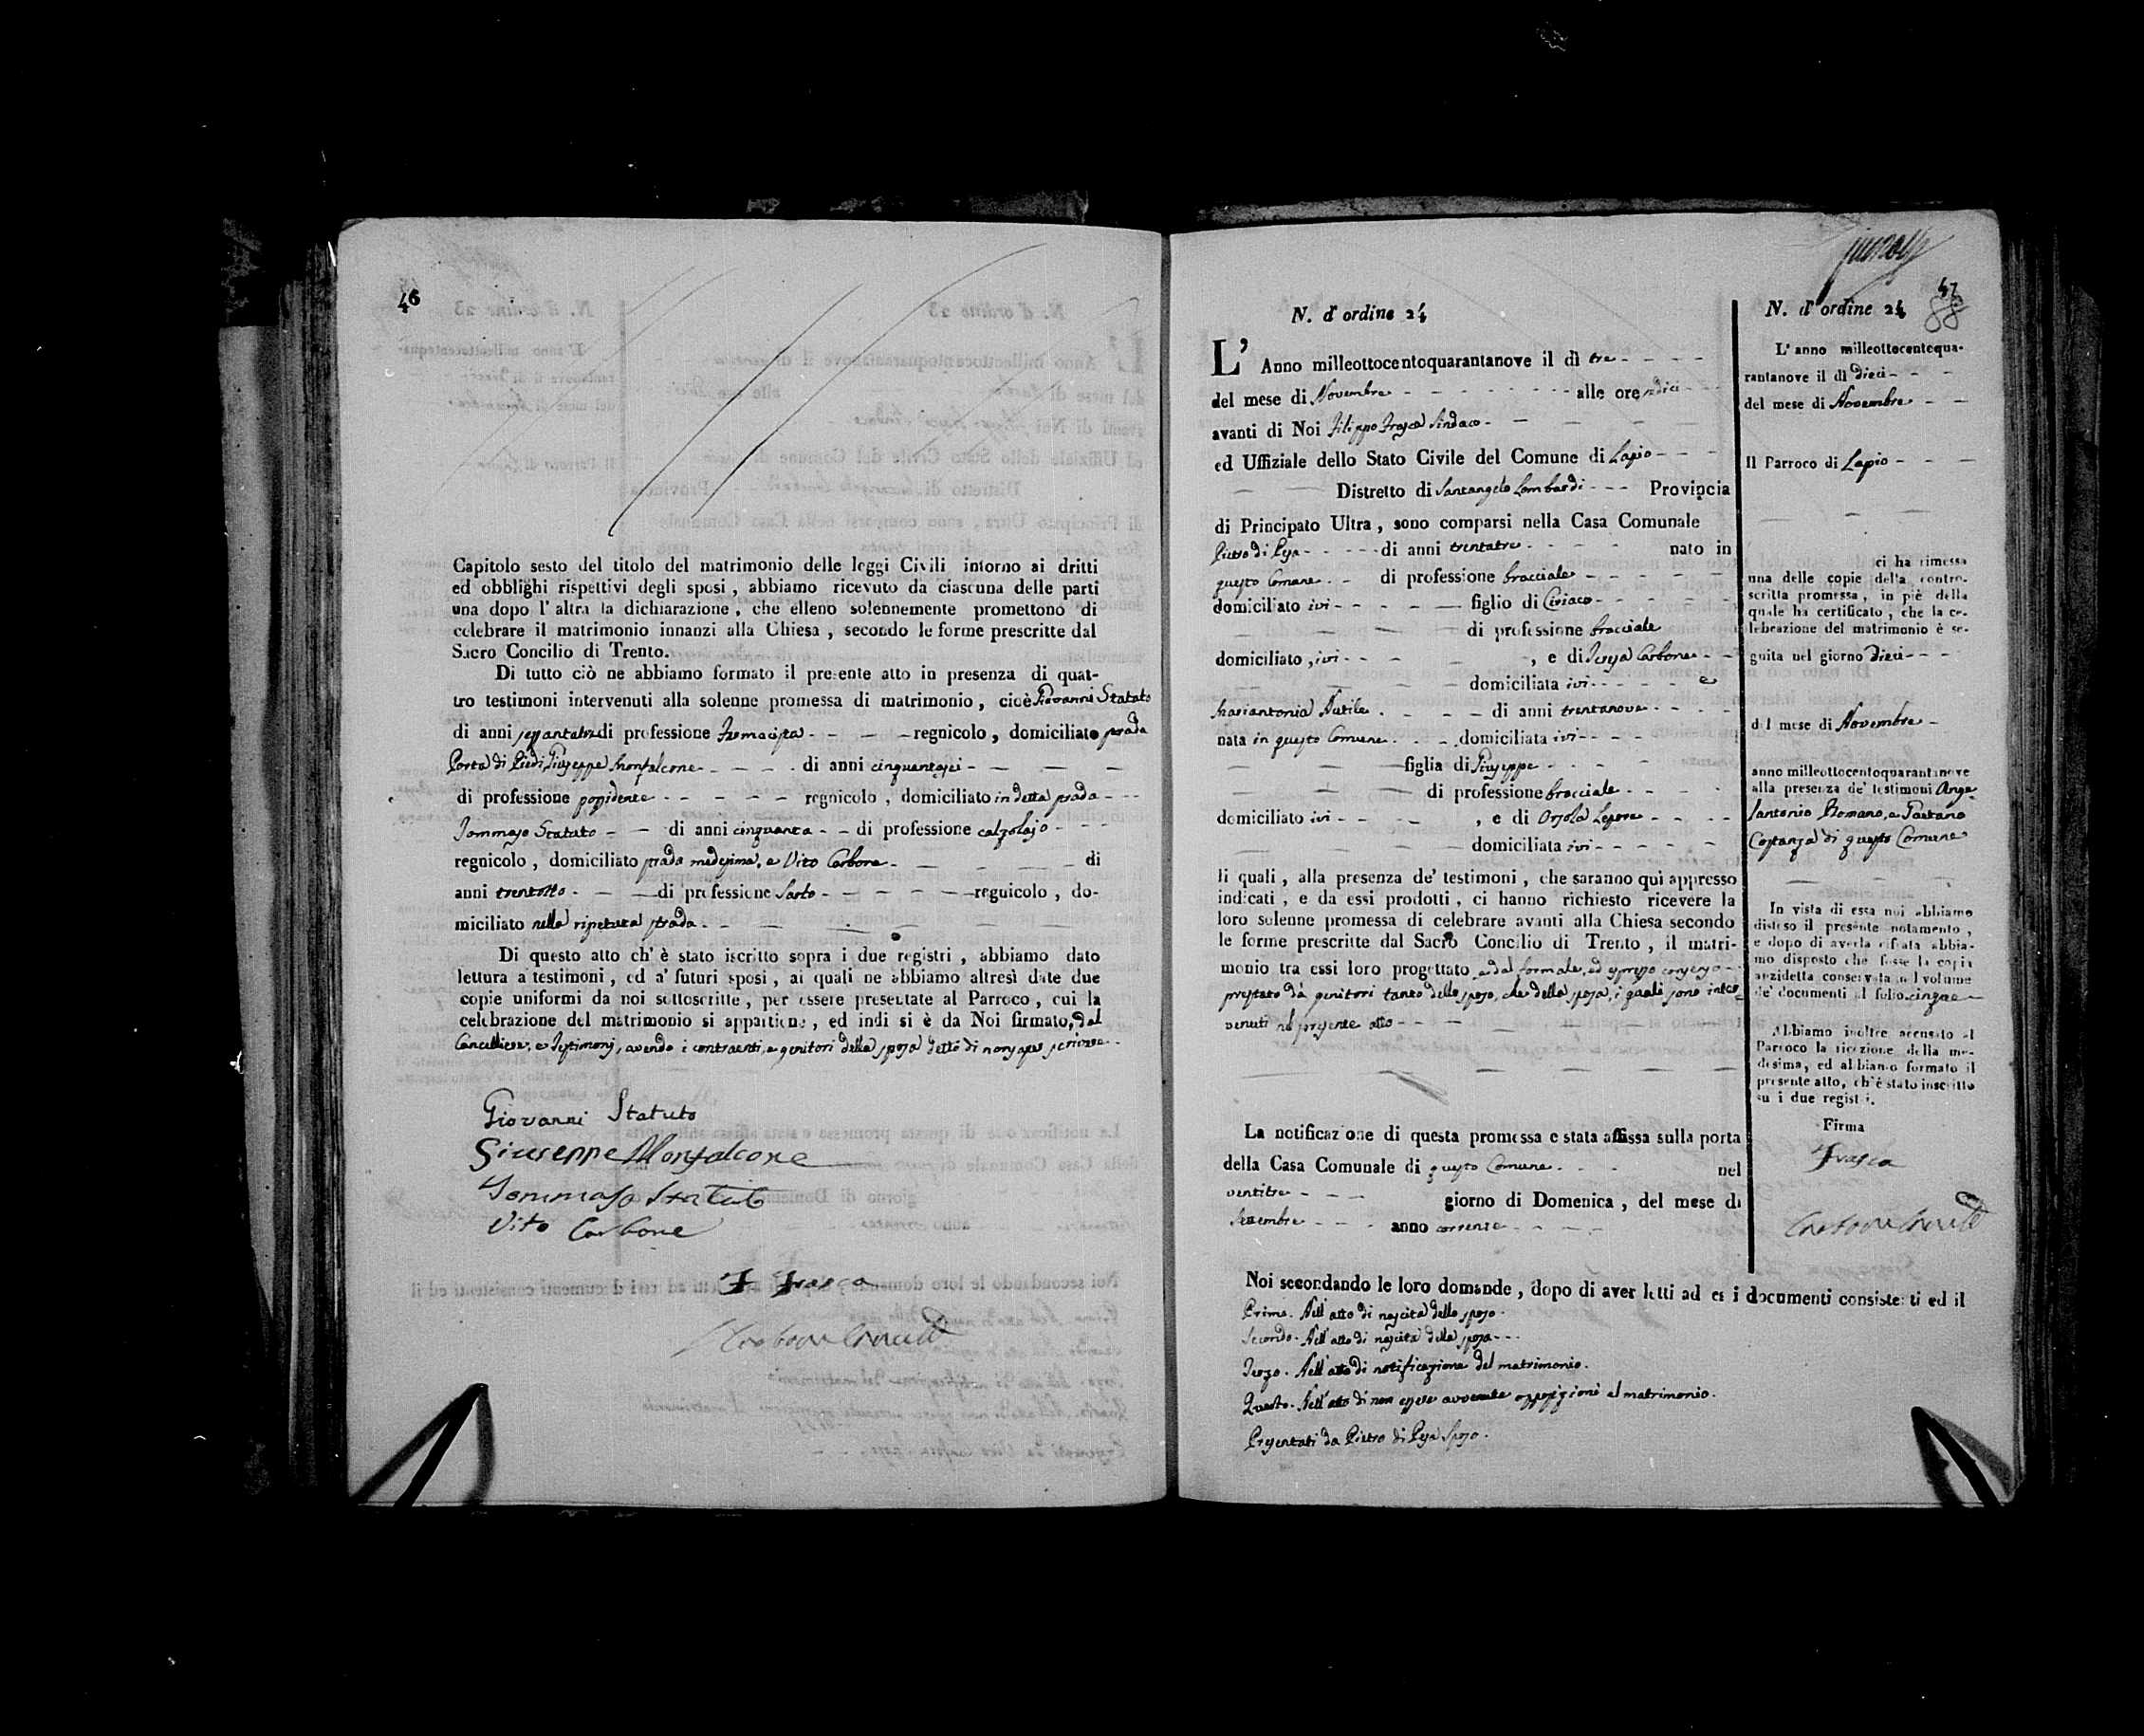 46
Capitolo sesto del titolo del matrimonio delle leggi Civili intorno ai dritti
ed obblighi rispettivi degli sposi, abbiamo ricevuto da ciascuna delle parti
una dopo l'altra la dichiarazione, che elleno solennemente promettono di
celebrare il matrimonio innanzi alla Chiesa, secondo le forme prescritte dal
Sacro Concilio di Trento.
Di tutto ciò ne abbiamo formato il presente atto in presenza di quat-
tro testimoni intervenuti alla solenne promessa di matrimonio, cioè Giovanni Statuto
di anni di professione regnicolo, domiciliato strada
Porta di Piedi, Giuseppe Monfalcone di anni cinquantasei
di professione possidente regnicolo, domiciliato in detta strada
Tommaso Statuto di anni cinquanta di professione calzolajo
regnicolo, domiciliato strada medesima, e Vito Carbone di
anni trentotto di professione Sarto regnicolo, do-
miciliato nella ripetuta strada
Di questo atto ch'è stato iscritto sopra i due registri, abbiamo dato
lettura a' testimoni, ed a' futuri sposi, ai quali ne abbiamo altresì date due
copie uniformi da noi sottoscritte, per essere presentate al Parroco, cui la
celebrazione del matrimonio si appartiene, ed indi si è da Noi firmato, dal
Cancelliere, e Testimonj, avendo i contraenti, e genitori della sposa detto di non saper scrivere
Giovanni Statuto
Giuseppe Monfalcone
Tommaso Statuto
Vito Carbone
F Frasca
47
88
N. d'ordine 24
L'Anno milleottocentoquarantanove il dì tre
del mese di Novembre alle ore
avanti di Noi Filippo Frasca Sindaco
ed Uffiziale dello Stato Civile del Comune di Lapio
Distretto di Santangelo Lombardi Provincia
di Principato Ultra, sono comparsi nella Casa Comunale
Pietro di Pesa di anni trentatre nato in
questo Comune di professione bracciale
domiciliato ivi figlio di Ciriaco
di professione bracciale
domiciliato, ivi, e di Teresa Carbone
domiciliata ivi e
Mariantonia Nutile di anni trentanove
nata in questo Comune domiciliata ivi
figlia di Giuseppe
di professione bracciale
domiciliato ivi, e di Orsola Lepore
domiciliata ivi
li quali, alla presenza de' testimoni, che saranno qui appresso
indicati, e da essi prodotti, ci hanno richiesto ricevere la
loro solenne promessa di celebrare avanti alla Chiesa secondo
le forme prescritte dal Sacro Concilio di Trento, il matri-
monio tra essi loro progettato, e dal formale, ed espresso consenso
prestato da' genitori tanto dello sposo, che della sposa, i quali sono inter-
venuti nel presente atto
La notificazione di questa promessa e stata affissa sulla porta
della Casa Comunale di questo Comune nel
ventitre giorno di Domenica, del mese di
Settembre anno corrente
Noi secondando le loro domande, dopo di aver letti ad essi i documenti consistenti ed il
Primo. Nell'atto di nascita dello sposo.
Secondo. Nell'atto di nascita della sposa
Terzo. Nell'atto di notificazione del matrimonio.
Quarto. Nell'atto di non essere avvenute opposizioni al matrimonio.
Presentati da Pietro di Pesa Sposo.
N. d'ordine 24
L'anno milleottocentoqua-
rantanove il dì dieci
del mese di Novembre
Il Parroco di Lapio
ci ha rimessa
una delle copie della contro-
scritta promessa, in piè della
quale ha certificato, che la ce-
lebrazione del matrimonio è se-
guita nel giorno dieci
del mese di Novembre
anno milleottocentoquarantanove
alla presenza de' testimoni Ange-
lantonio Romano, e Gaetano
Costanza di questo Comune
In vista di essa noi abbiamo
disteso il presente notamento,
e dopo di averla cifrata abbia-
mo disposto che fosse la copia
anzidetta conservata nel volume
de' documenti al folio cinque
Abbiamo inoltre accusato al
Parroco la ricezione della me-
desima, ed abbiamo formato il
presente atto, ch'è stato inscritto
su i due registri.
Firma
Frasca